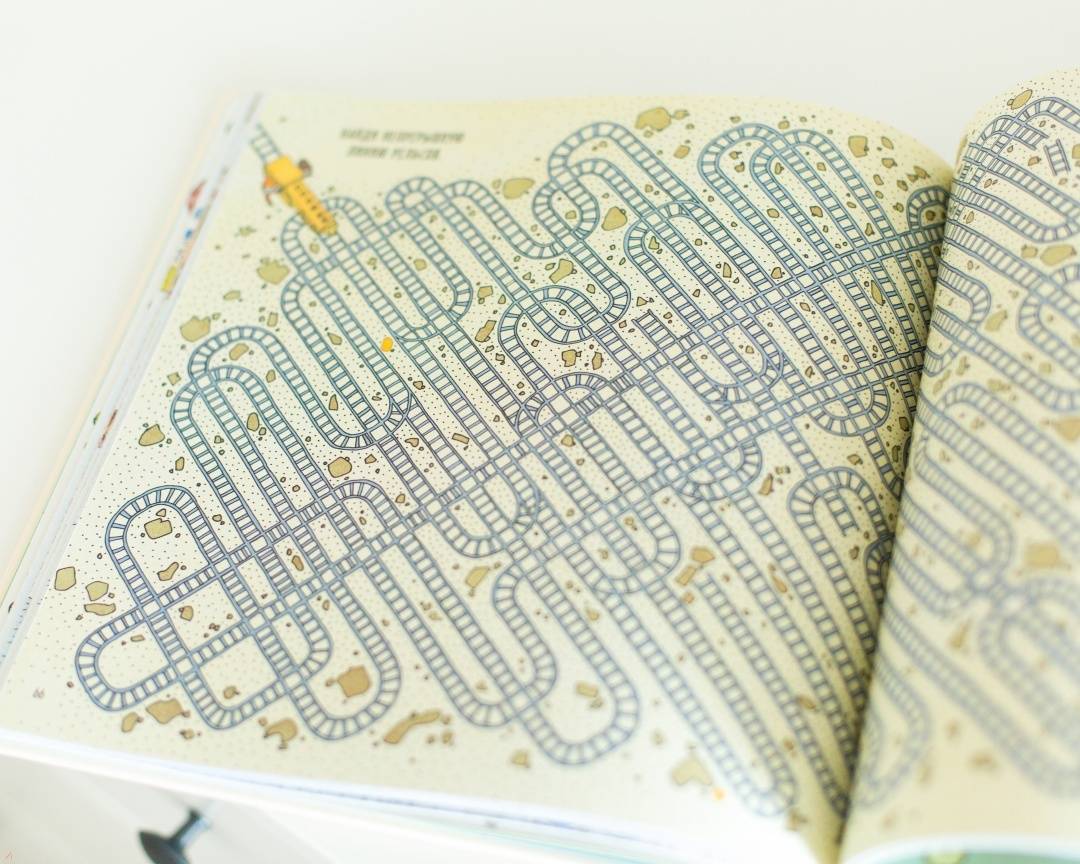 НАЙДИ НЕПРЕРЫВНУЮ
ЛИНИЮ РЕЛЬСОВ
66